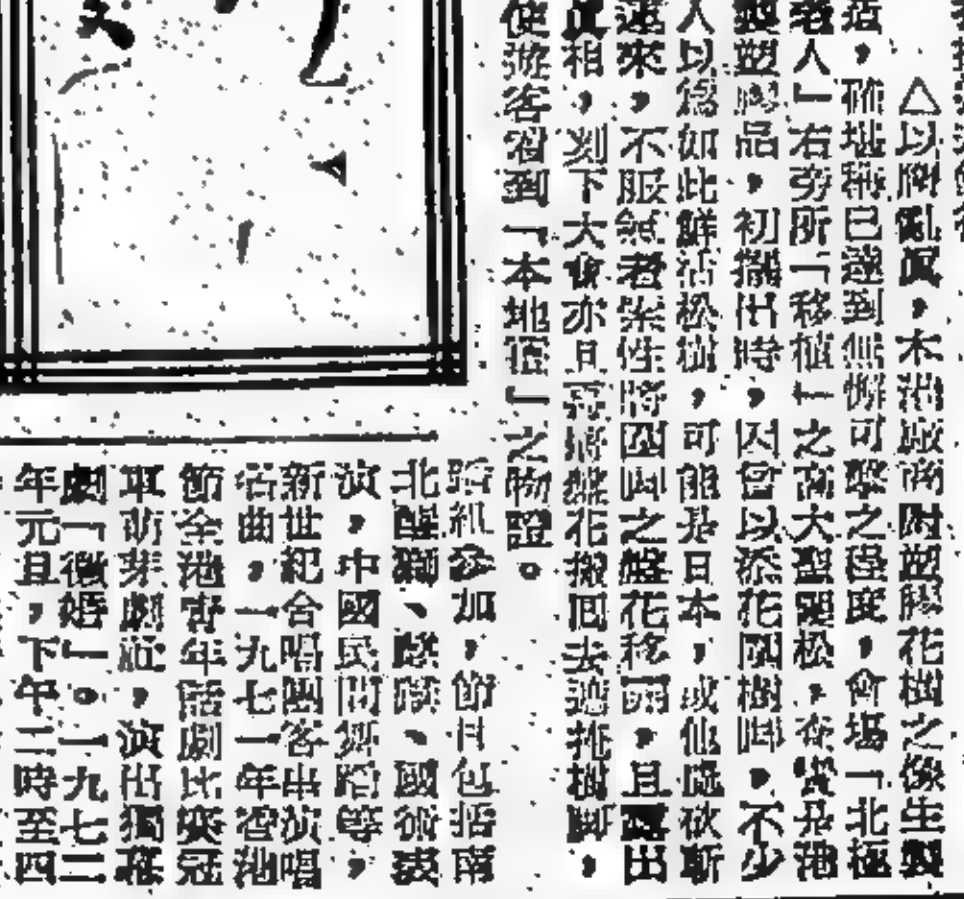 △以假亂眞,本港廠商附塑膠花樹之像生製
造,確堪稱已達到無懈可擊之程度,會場「北極
老人」右旁所「移植」之高大聖誕松,夜實是池
製塑膠品,初擺出時,因曾以添花園樹脚,不少
人以爲如此鮮活松樹,可能是日本,或他處砍斬
運來,不服氣者索性將四圍之盤花移開,且露出
眞相,刻下大會亦且再將盤花搬囘去遮掩樹脚,
使遊客看到「本地植」之物證。
蹈組參加,節目包括南
北醒獅、麒麟、國術表
演,中國民間舞蹈等,
新世紀合唱團客串演唱
名曲,一九七一年香港
節全港青年話劇比賽冠
軍萌芽劇社,演出獨幕
劇「徵婚」。一九七二
年元旦,下午二時至四